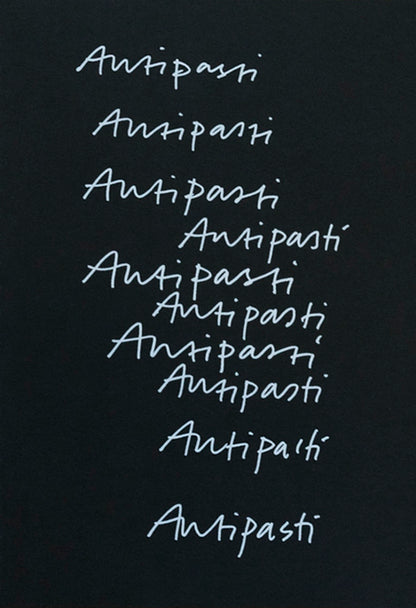 Antipasti
Antipasti
Antipasti
Antipasti
Antipasti
Antipasti
Antipasti
Antipasti
Antipasti
Antipasti